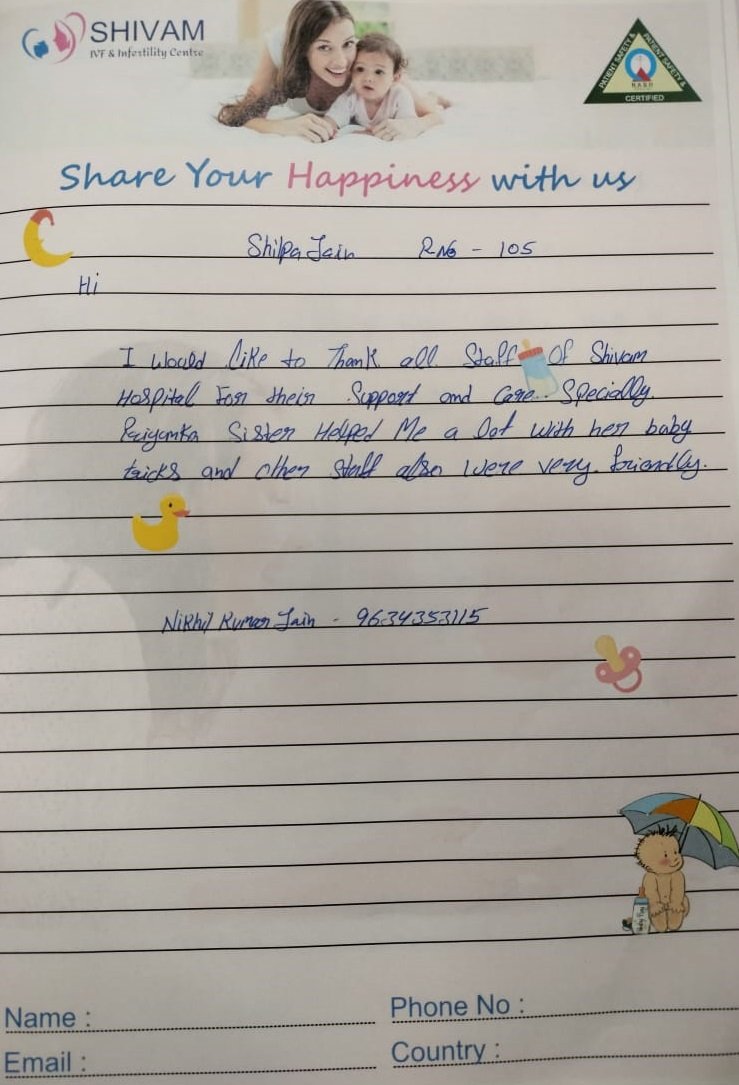 SHIVAM
IVF & Infertility Centre
PATIENT SAFETY & PATIENT SAFETY &
CERTIFIED
Share Your Happiness with us
Shilpa Jain RNo - 105
Hi
I would like to Thank all Staff Of Shivam
Hospital For their Support and Care. Specially
Priyanka Sister Helped Me a lot with her baby
tricks and other staff also were very friendly.
Nikhil Kumar Jain - 9634353115
Name :
Phone No :
Email :
Country :